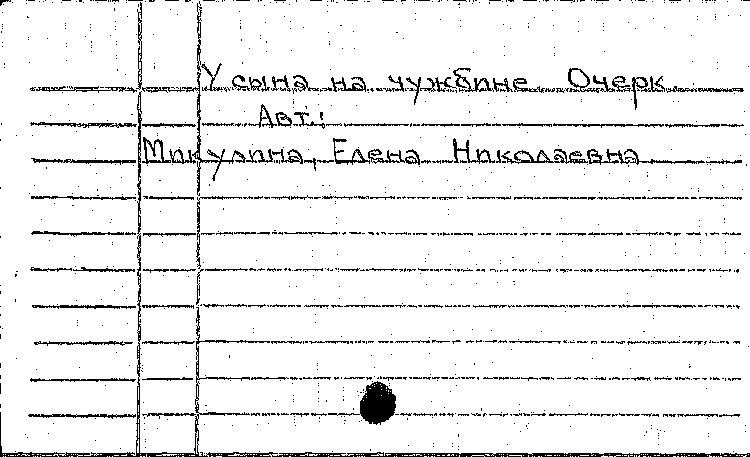 У сына на чужбине. Очерк.
Авт.:
Микулина, Елена Николаевна